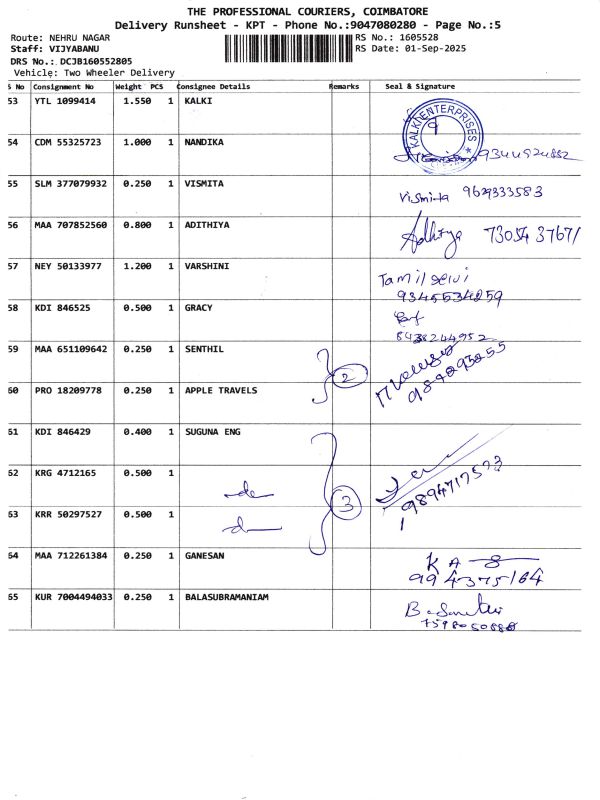 THE PROFESSIONAL COURIERS, COIMBATORE
Delivery Runsheet - KPT - Phone No.:9047080280 - Page No.:5
Route: NEHRU NAGAR RS No.: 1605528
Staff: VIJYABANU RS Date: 01-Sep-2025
DRS No.: DCJB160552805
Vehicle: Two Wheeler Delivery
S No Consignment No Weight PCS Consignee Details Remarks Seal & Signature
53 YTL 1099414 1.550 1 KALKI
KALKI ENTERPRISES
54 CDM 55325723 1.000 1 NANDIKA
55 SLM 377079932 0.250 1 VISMITA Vismita 9629333583
56 MAA 707852560 0.800 1 ADITHIYA Adhitya 73054 37671
57 NEY 50133977 1.200 1 VARSHINI Tamilselvi
9345534259
58 KDI 846525 0.500 1 GRACY
8438244952
59 MAA 651109642 0.250 1 SENTHIL 2
60 PRO 18209778 0.250 1 APPLE TRAVELS
61 KDI 846429 0.400 1 SUGUNA ENG
62 KRG 4712165 0.500 1 do 3 9894717573
63 KRR 50297527 0.500 1 do
64 MAA 712261384 0.250 1 GANESAN
994375164
65 KUR 7004494033 0.250 1 BALASUBRAMANIAM
7598050880